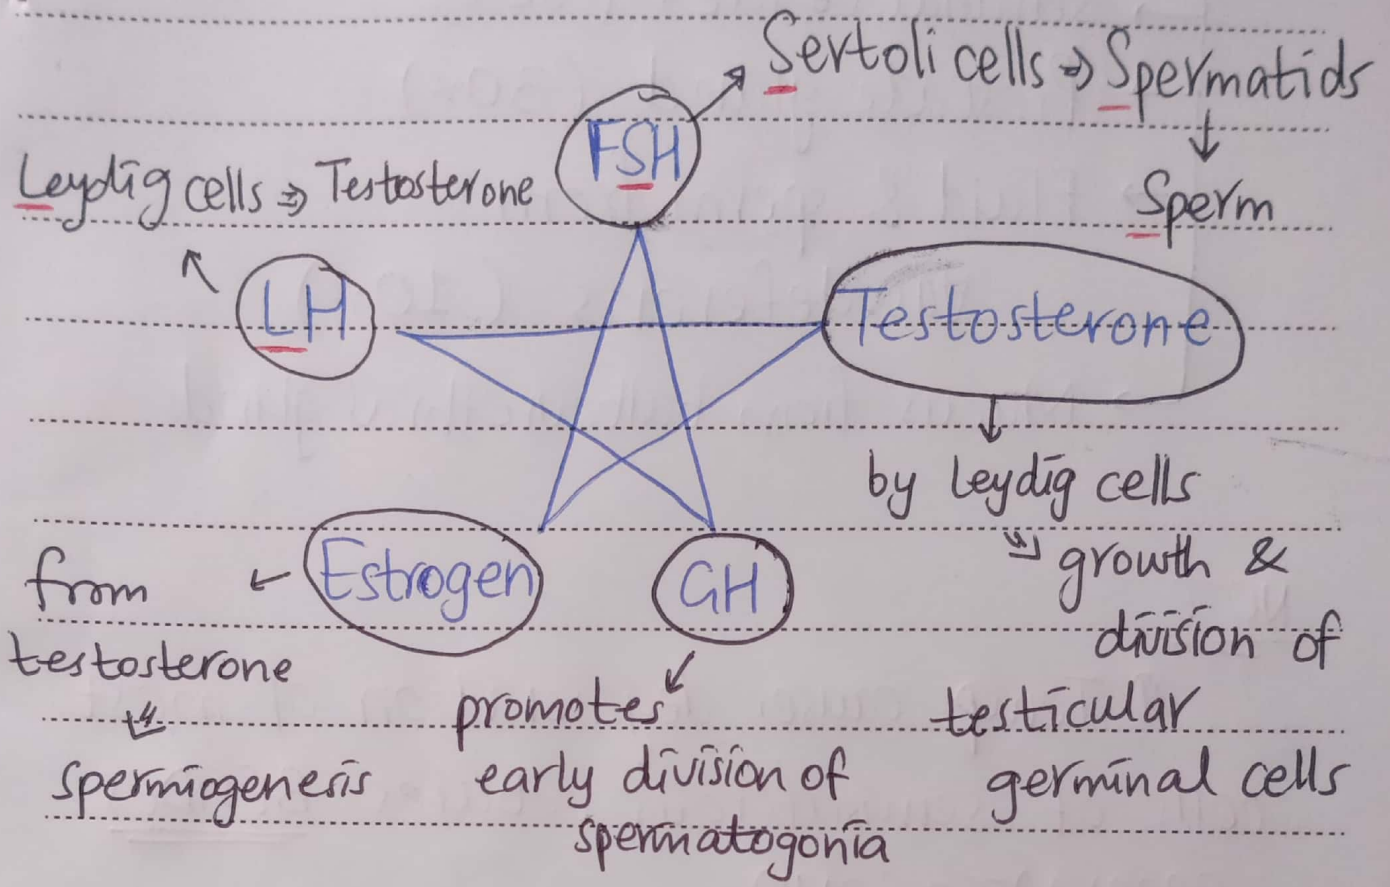 Sertoli cells ⇒ Spermatids
↓
Sperm
FSH
Leydig cells ⇒ Testosterone
LH
Testosterone
by Leydig cells
growth &
division of
testicular
germinal cells
Estrogen
from
testosterone
spermiogenesis
GH
promotes
early division of
spermatogonia